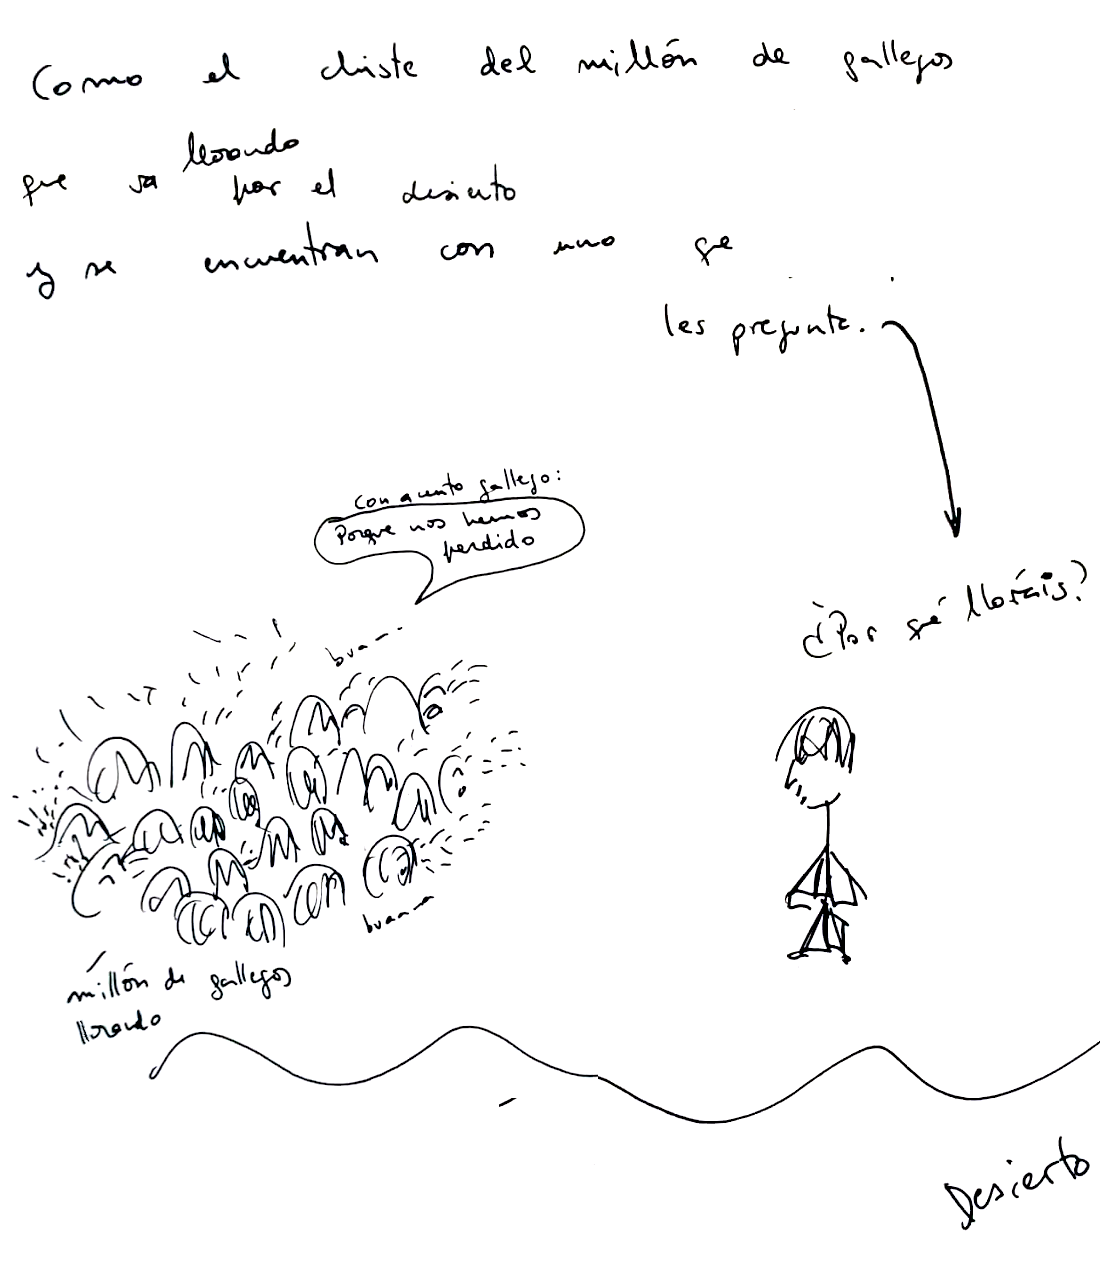 Como el chiste del millón de gallegos
que va llorando por el desierto
y se encuentran con uno que
les pregunta.
con acento gallego:
Porque nos hemos
perdido
¿Por qué lloráis?
bua---
buana
millón de gallegos
llorando
Desierto